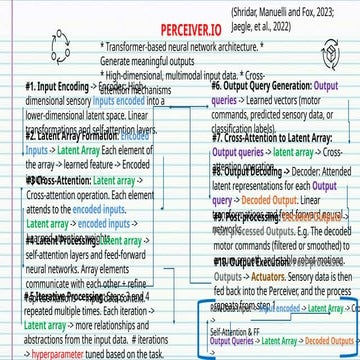 (Shridar, Manuelli and Fox, 2023;
Jaegle, et al., 2022)
PERCEIVER.IO
* Transformer-based neural network architecture. *
Generate meaningful outputs
* High-dimensional, multimodal input data. * Cross-
attention mechanisms
#1. Input Encoding -> Encoder: High-
dimensional sensory inputs encoded into a
lower-dimensional latent space. Linear
transformations and self-attention layers.
#2. Latent Array Formation: Encoded
Inputs -> Latent Array Each element of
the array -> learned feature -> Encoded
#3. Cross-Attention: Latent array ->
Cross-attention operation. Each element
attends to the encoded inputs.
Latent array -> encoded inputs ->
#4 Latent Processing: Latent array ->
self-attention layers and feed-forward
neural networks. Array elements
communicate with each other + refine
#5 Iterative Processing:
repeated multiple times. Each iteration ->
Latent array -> more relationships and
abstractions from the input data. # iterations
-> hyperparameter tuned based on the task.
#6. Output Query Generation: Output
queries -> Learned vectors (motor
commands, predicted sensory data, or
classification labels).
#7. Cross-Attention to Latent Array:
Output queries -> latent array -> Cross-
attention
#8. Output Decoding -> Decoder: Attended
latent representations for each Output
query -> Decoded Output. Linear
transformations and feed-forward neural
networks.
#9. Post-processing: Decoded Output ->
Processed Outputs. E.g. The decoded
motor commands (filtered or smoothed) to
robot motions.
#10. Output Execution:
Outputs -> Actuators. Sensory data is then
fed back into the Perceiver, and the process
repeats from step 1
encoded input -> Latent Array -> Cro
Self-Attention & FF
Output Queries -> Latent Array -> Decoded Outputs
->